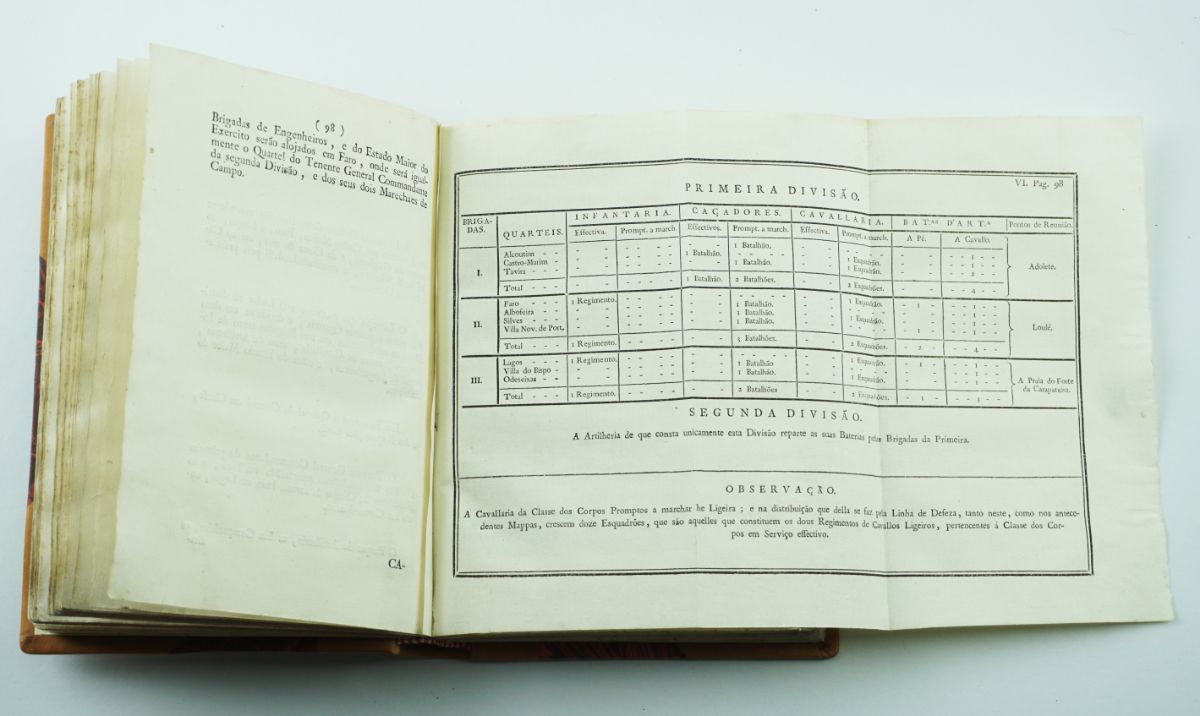 ( 98 )
Brigadas de Engenheiros , e do Estado Maior do
Exercito serão alojados em Faro , onde será igual-
mente o Quartel do Tenente General Commandante
da segunda Divisão , e dos seus dois Marechaes de
Campo.
CA-
VI. Pag. 98
PRIMEIRA DIVISÃO.
BRIGA-DAS. QUARTEIS. INFANTARIA. CAÇADORES. CAVALLARIA. BAT.as D'ART.a Pontos de Reunião.
Effectiva. Prompt. a march. Effectivos. Prompt. a march. Effectiva. Prompt. a march. A Pé. A Cavallo.
I. Alcoutim - - - - - - 1 Batalhão. - - 1 - -
Castro-Marim - 1 Batalhão. - - - - - 1 Esquadrão. - - 1 - - Adolete.
Tavira - - - 1 Batalhão. 1 Esquadrão. - - 2 - -
Total - - - 1 Batalhão. 2 Batalhões. 2 Esquadrões. - - 4 - -
II. Faro - - - 1 Regimento. - - - - - 1 Esquadrão. - 1 - - - 1 - -
Albofeira - - 1 Batalhão. - - 1 - -
Silves - - - 1 Batalhão. 1 Esquadrão. - - 1 - - Loulé.
Villa Nov. de Port. 1 Batalhão. - 1 - - - 1 - -
Total - - - 1 Regimento. 3 Batalhões. 2 Esquadrões. - 2 - - - 4 - -
III. Lagos - - - 1 Regimento. - - - - - 1 Esquadrão. - 1 - - - 1 - -
Villa do Bispo - - 1 Batalhão - - 1 - - A Praia do Forte
Odeseixas - - 1 Batalhão. 1 Esquadrão. - - 1 - - da Carapateira.
Total - - - 1 Regimento. 2 Batalhões 2 Esquadrões. - 1 - - - 3 - -
SEGUNDA DIVISÃO.
A Artilheria de que consta unicamente esta Divisão reparte as suas Baterias pelas Brigadas da Primeira.
OBSERVAÇÃO.
A Cavallaria da Classe dos Corpos Promptos a marchar he Ligeira ; e na distribuição que della se faz pela Linha de Defeza, tanto neste, como nos antece-
dentes Mappas, crescem doze Esquadrões, que são aquelles que constituem os dous Regimentos de Cavallos Ligeiros, pertencentes á Classe dos Cor-
pos em Serviço effectivo.